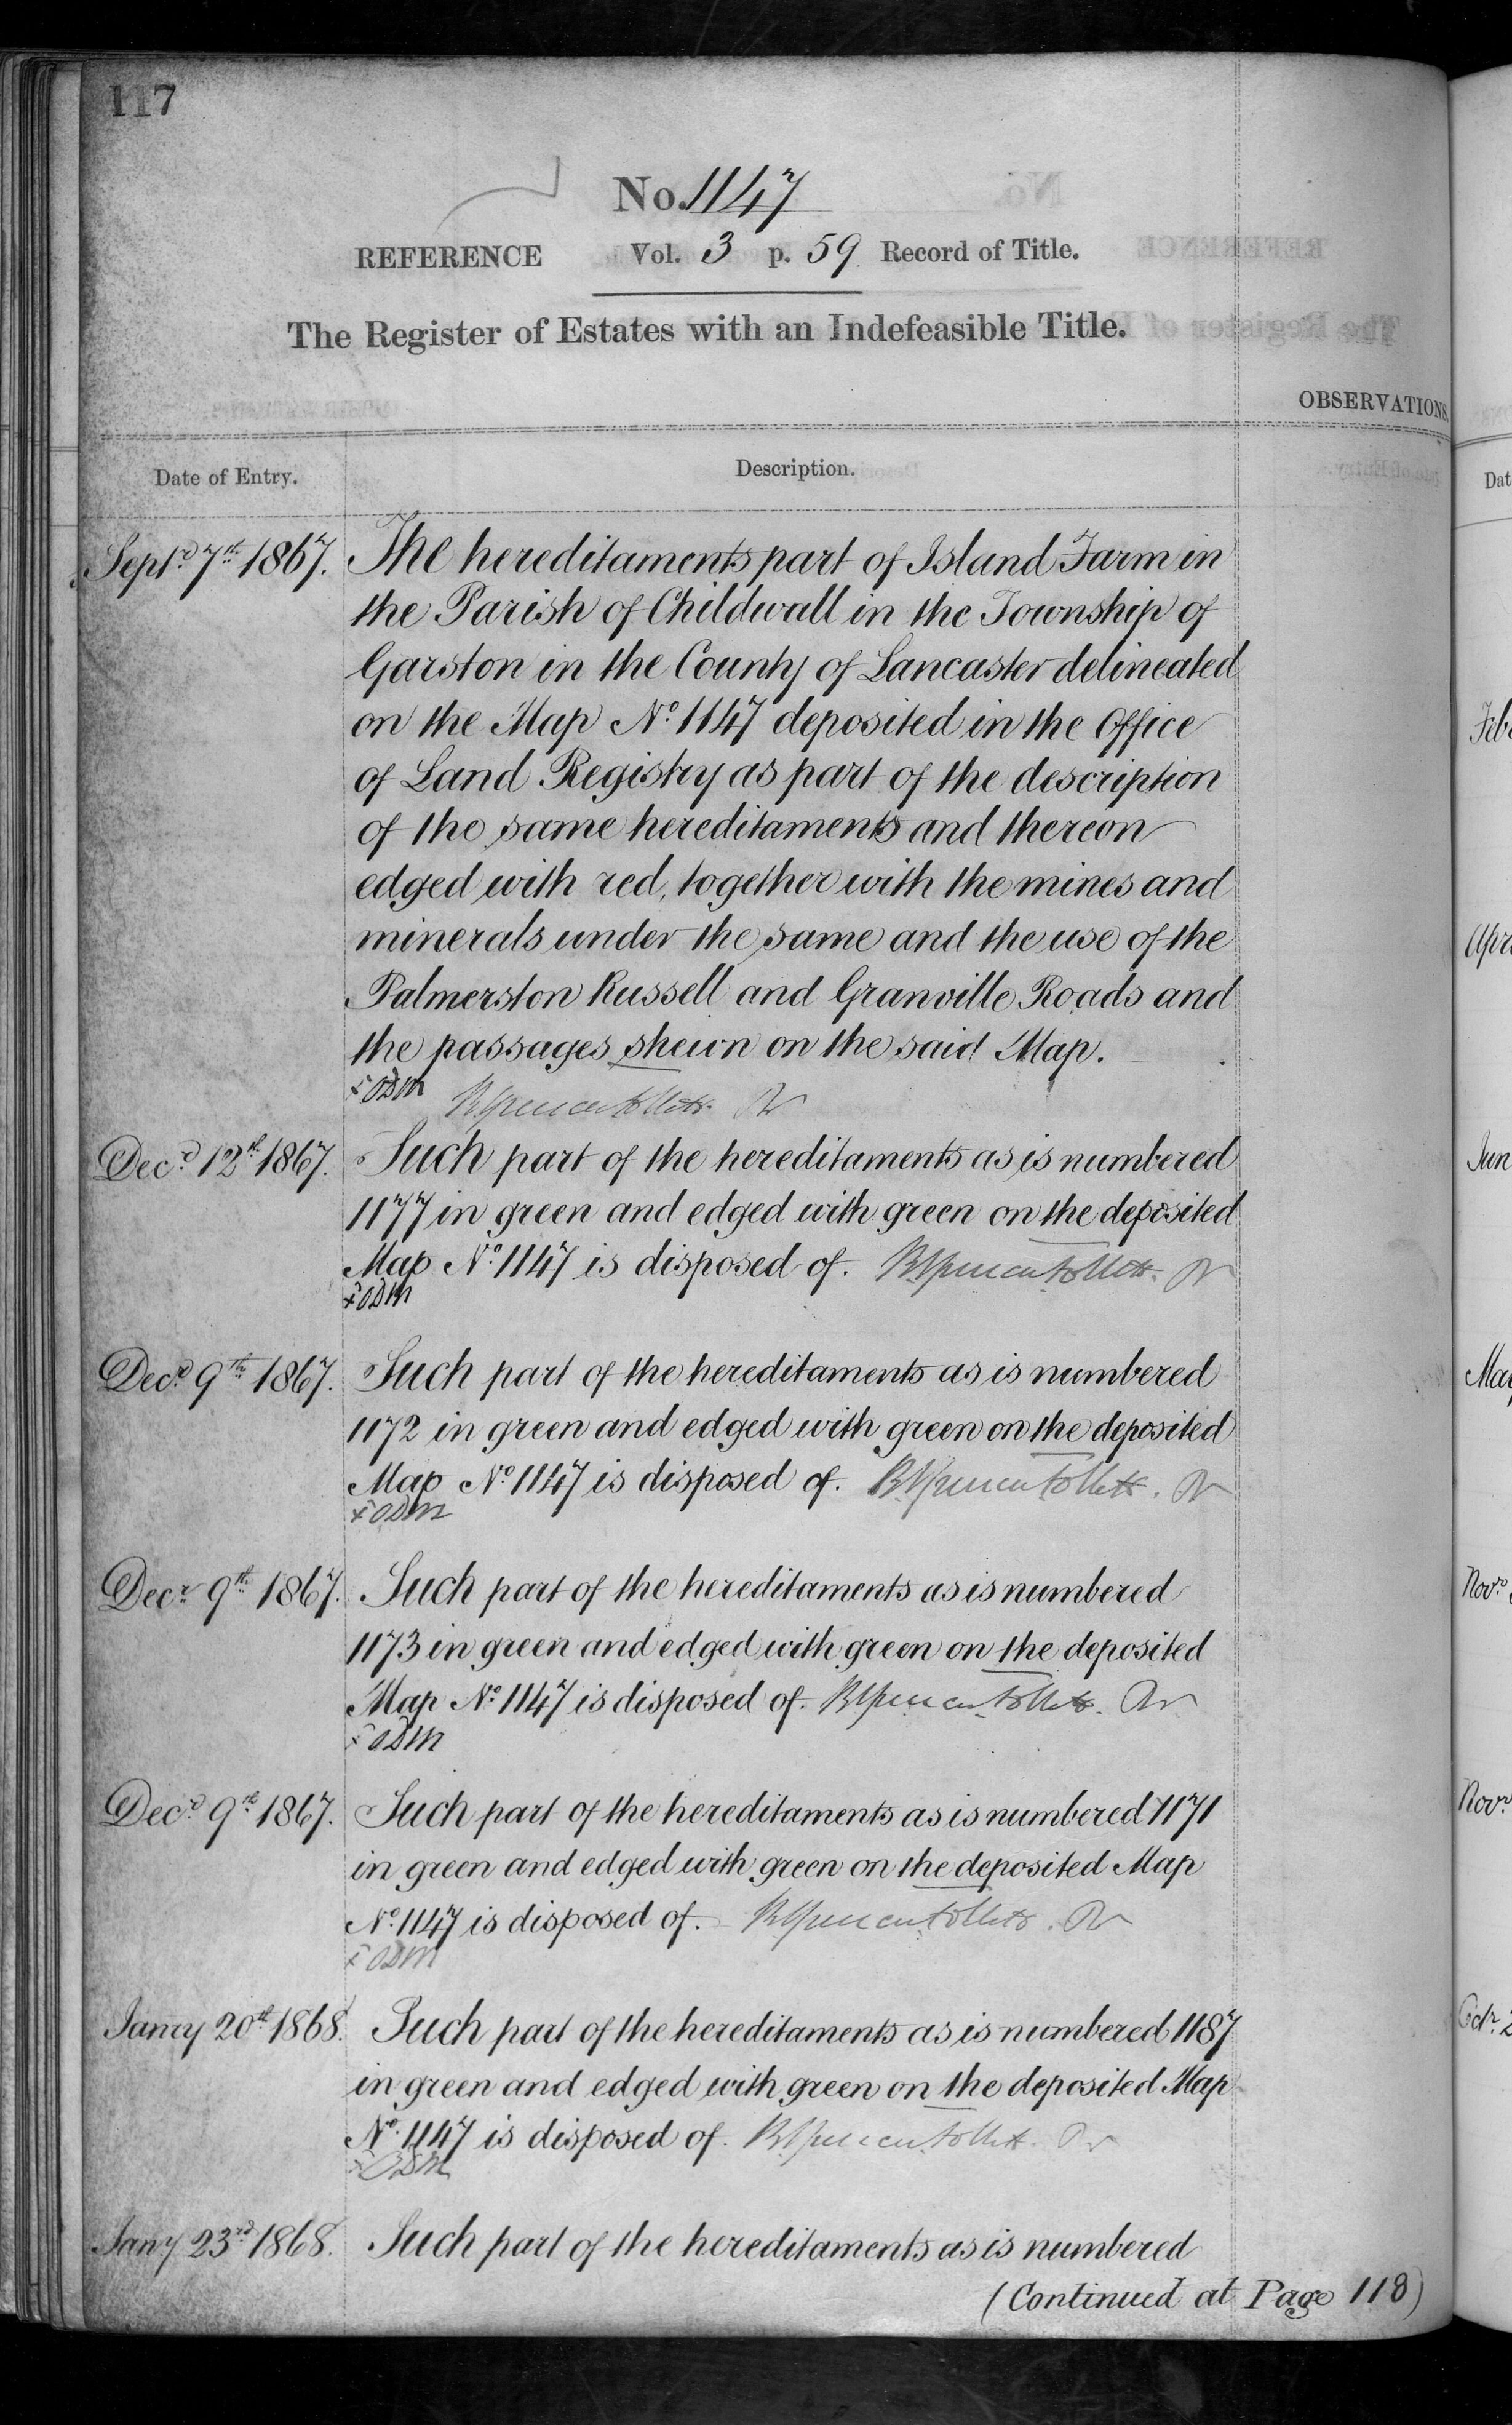 117
No. 1147
REFERENCE Vol. 3 p. 59 Record of Title.
The Register of Estates with an Indefeasible Title.
OBSERVATIONS.
Date of Entry. Description.
Septr 7th 1867. The hereditaments part of Island Farm in
the Parish of Childwall in the Township of
Garston in the County of Lancaster delineated
on the Map No 1147 deposited in the Office
of Land Registry as part of the description
of the same hereditaments and thereon
edged with red, together with the mines and
minerals under the same and the use of the
Palmerston Russell and Granville Roads and
the passages shewn on the said Map.
Decr 12th 1867. Such part of the hereditaments as is numbered
1177 in green and edged with green on the deposited
Map No 1147 is disposed of.
Decr 9th 1867. Such part of the hereditaments as is numbered
1172 in green and edged with green on the deposited
Map No 1147 is disposed of.
Decr 9th 1867. Such part of the hereditaments as is numbered
1173 in green and edged with green on the deposited
Map No 1147 is disposed of.
Decr 9th 1867. Such part of the hereditaments as is numbered 1171
in green and edged with green on the deposited Map
No 1147 is disposed of.
Jancy 20th 1868. Such part of the hereditaments as is numbered 1187
in green and edged with green on the deposited Map
No. 1147 is disposed of.
Jany 23rd 1868. Such part of the hereditaments as is numbered
(Continued at Page 118)